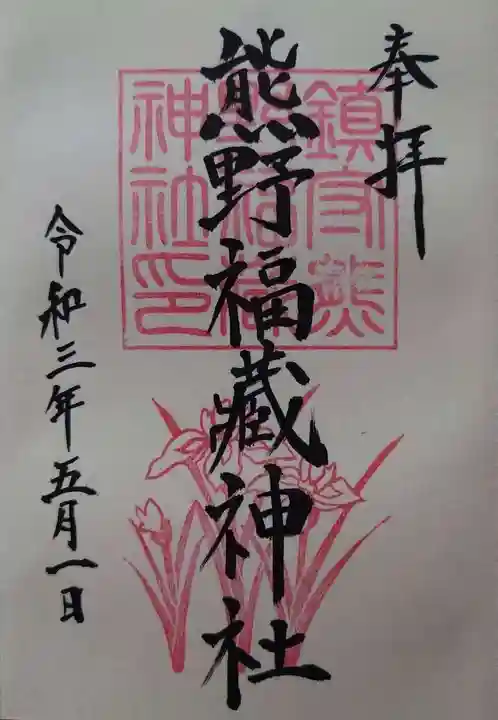 奉拝
熊野福藏神社
令和三年五月一日
鎮守熊
神社印